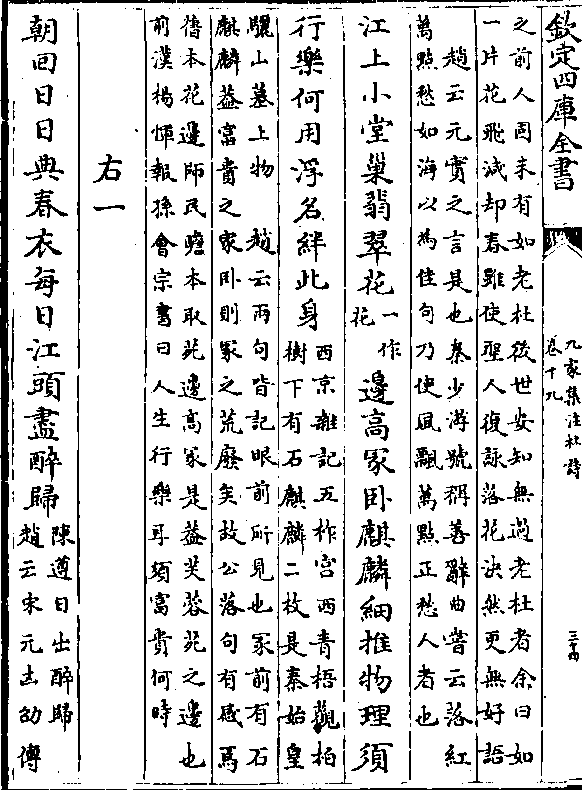 欽定四庫全書
九家集注杜詩
卷十九
三十四
之前人固未有如老杜後世安知無過老杜者余曰如
一片花飛減却春雖使聖人復詠落花決然更無好語
趙云元實之言是也秦少游號稱善辭曲嘗云落紅
萬點愁如海以為佳句乃使風飄萬點正愁人者也
江上小堂巢翡翠花一作花邊高冢卧麒麟細推物理須
行樂何用浮名絆此身
西京雜記五柞宫西青梧觀柏
樹下有石麒麟二枚是秦始皇
驪山墓上物 趙云兩句皆記眼前所見也冢前有石
麒麟葢富貴之家卧則冢之荒廢矣故公落句有感焉
舊本花邊師民瞻本取苑邊高冢是葢芙蓉苑之邊也
前漢楊惲報孫會宗書曰人生行樂耳須富貴何時
右一
朝回日日典春衣每日江頭盡醉歸
陳遵日出醉歸
趙云宋元㐫劭傳